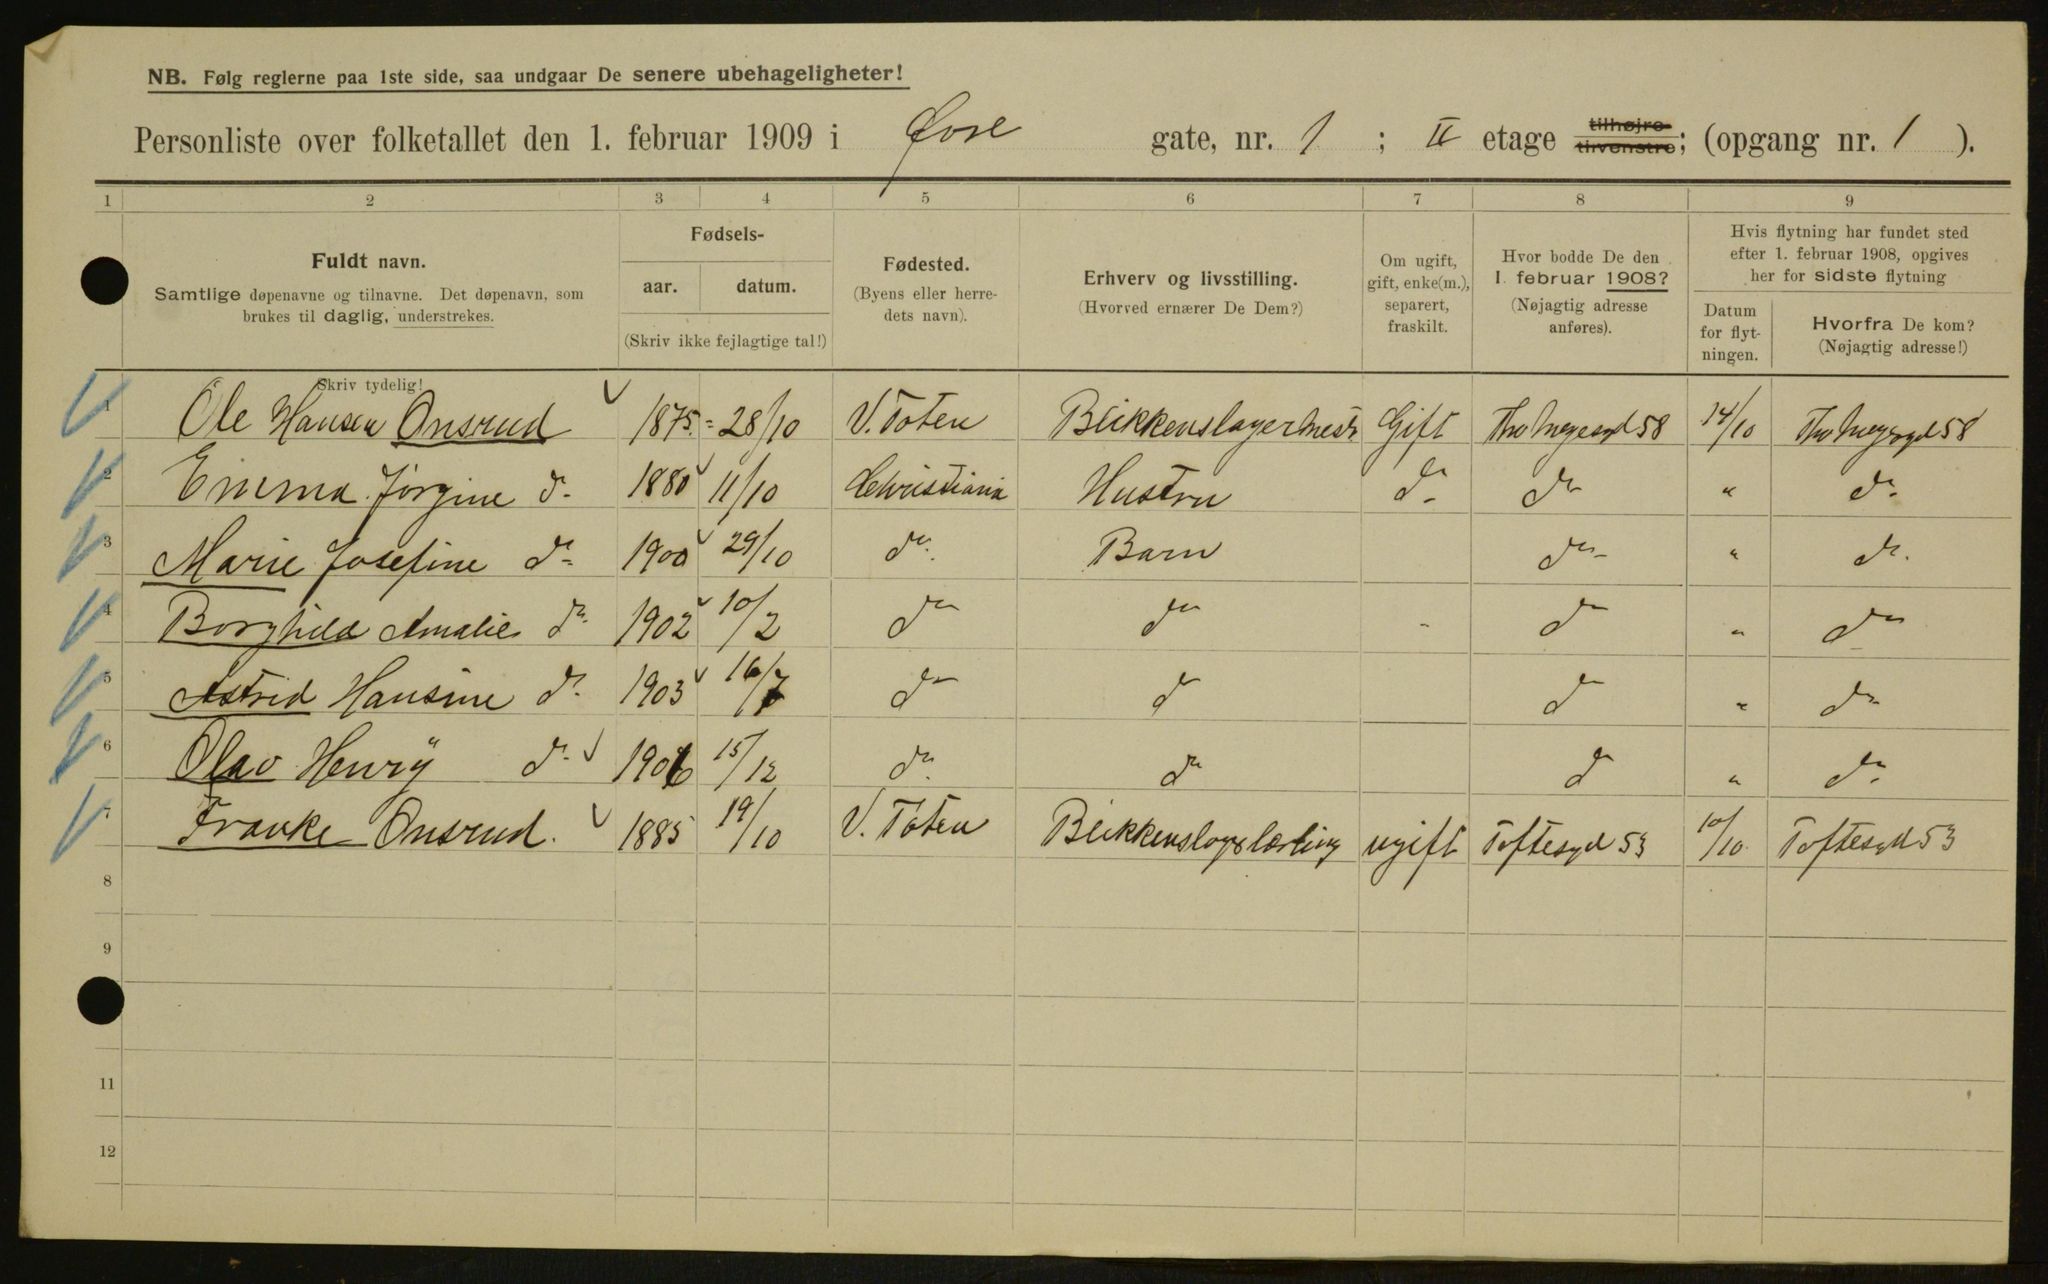 NB. Følg reglerne paa 1ste side, saa undgaar De senere ubehageligheter!
Personliste over folketallet den 1. februar 1909 i gate, nr. 1 ; II etage tilhøjre tilvenstre; (opgang nr. 1 ).
1 2 3 4 5 6 7 8 9
Fuldt navn.
Samtlige døpenavne og tilnavne. Det døpenavn, som
brukes til daglig, understrekes.
Skriv tydelig!
Fødsels-
aar. datum.
(Skriv ikke fejlagtige tal!)
Fødested.
(Byens eller herre-
dets navn).
Erhverv og livsstilling.
(Hvorved ernærer De Dem?)
Om ugift,
gift, enke(m.),
separert,
fraskilt.
Hvor bodde De den
1. februar 1908?
(Nøjagtig adresse
anføres).
Hvis flytning har fundet sted
efter 1. februar 1908, opgives
her for sidste flytning
Datum
for flyt-
ningen.
Hvorfra De kom?
(Nøjagtig adresse!)
1 Ole Hansen Onsrud 1875 28/10 V. Toten Blikkenslagermestr Gift 58 14/10 58
2 Emma Jørgine do 1880 11/10 Christiania Hustru do do " do
3 Marie Josefine do 1900 29/10 do Barn do " do
4 Borghild Amalie do 1902 10/2 do do " do " do
5 Astrid Hansine do 1903 16/7 do do do " do
6 Olav Henry do 1906 15/12 do do do " do
7 Franke Onsrud. 1885 19/10 V. Toten Blikkenslagerlærling ugift Toftesgd 53 10/10 Toftesgd 53
8
9
11
12